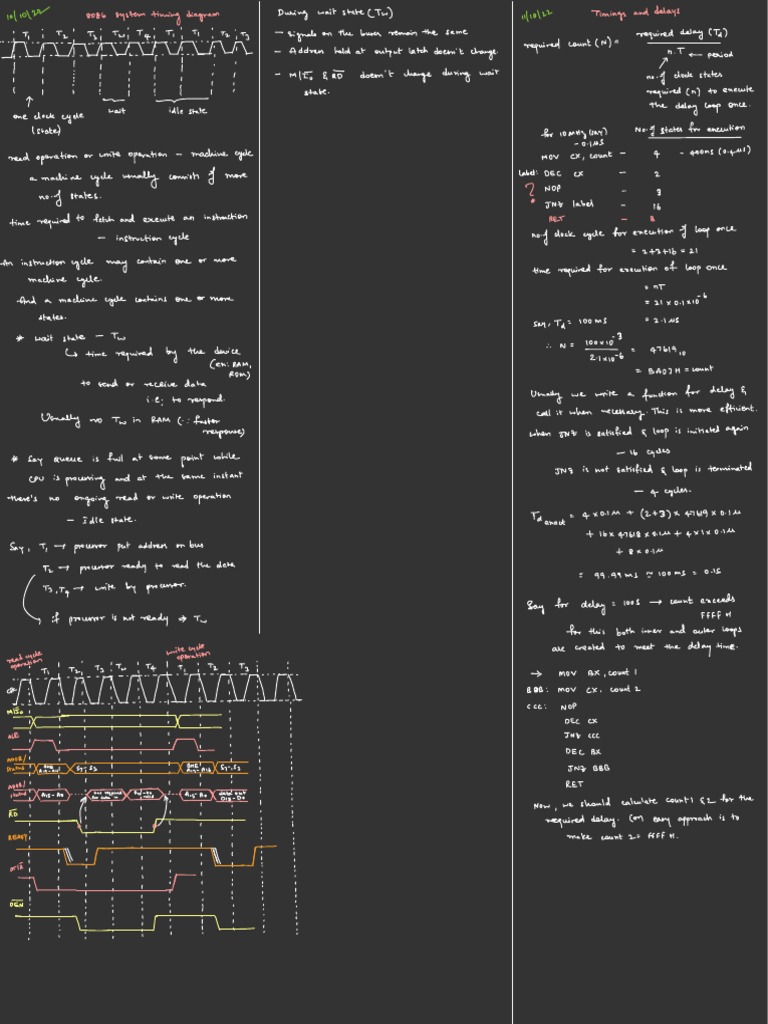 10/10/22
8086 system timing diagram
T1 T2 T3 Tw T4 T1 T1 T2 T3
one clock cycle
(state)
wait
idle state
read operation or write operation - machine cycle
a machine cycle usually consists of more
no. of states.
time required to fetch and execute an instruction
- instruction cycle
An instruction cycle may contain one or more
machine cycle.
And a machine cycle contains one or more
states.
* wait state - Tw
↳ time required by the device
(ex: RAM,
ROM)
to send or receive data
i.e; to respond.
Usually no Tw in RAM (∵ faster
response)
* Say queue is full at some point while
CPU is processing and at the same instant
there's no ongoing read or write operation
- idle state.
Say, T1 → processor put address on bus
T2 → processor ready to read the data
T3, T4 → write by processor.
if processor is not ready → Tw
read cycle
operation
write cycle
operation
T1 T2 T3 Tw T4 T1 T2 T3
CLK
M/IO
ALE
ADDR/
Status
BHE
A19-A16
S7-S3
BHE
A19-A16
S7-S3
ADDR/
A15-A0
A15-A0
D15-D0
RD
READY
DT/R
DEN
During wait state (Tw)
- Signals on the buses remain the same
- Address held at output latch doesn't change.
- M/IO & RD doesn't change during wait
state.
11/10/22
Timings and delays
required count (N) = required delay (Td)
n.T
→ period
no. of clock states
required (n) to execute
the delay loop once.
for 10MHz (say)
- 0.1μs
No. of states for execution
MOV CX, count - 4 - 400ns (0.4μs)
Label: DEC CX - 2
? NOP - 3
JNZ label - 16
RET - 8
no. of clock cycle for execution of loop once
= 2+3+16 = 21
time required for execution of loop once
= nT
= 21 × 0.1×10^-6
= 2.1μs
say, Td = 100ms
∴ N = 100×10^-3
2.1×10^-6
= 47619₁₀
= BA03H = count
Usually we write a function for delay &
call it when necessary. This is more efficient.
when JNZ is satisfied & loop is initiated again
- 16 cycles
JNZ is not satisfied & loop is terminated
- 4 cycles.
Td exact = 4×0.1μ + (2+3)×47619×0.1μ
+ 16×47618×0.1μ + 4×1×0.1μ
+ 8×0.1μ
= 99.99ms ≈ 100ms = 0.1s
Say for delay = 100s → count exceeds
FFFF H
for this both inner and outer loops
are created to meet the delay time.
→ MOV BX, count 1
BBB: MOV CX, count 2
CCC: NOP
DEC CX
JNZ CCC
DEC BX
JNZ BBB
RET
Now, we should calculate count 1 & 2 for the
required delay. (or) easy approach is to
make count 2 = FFFF H.